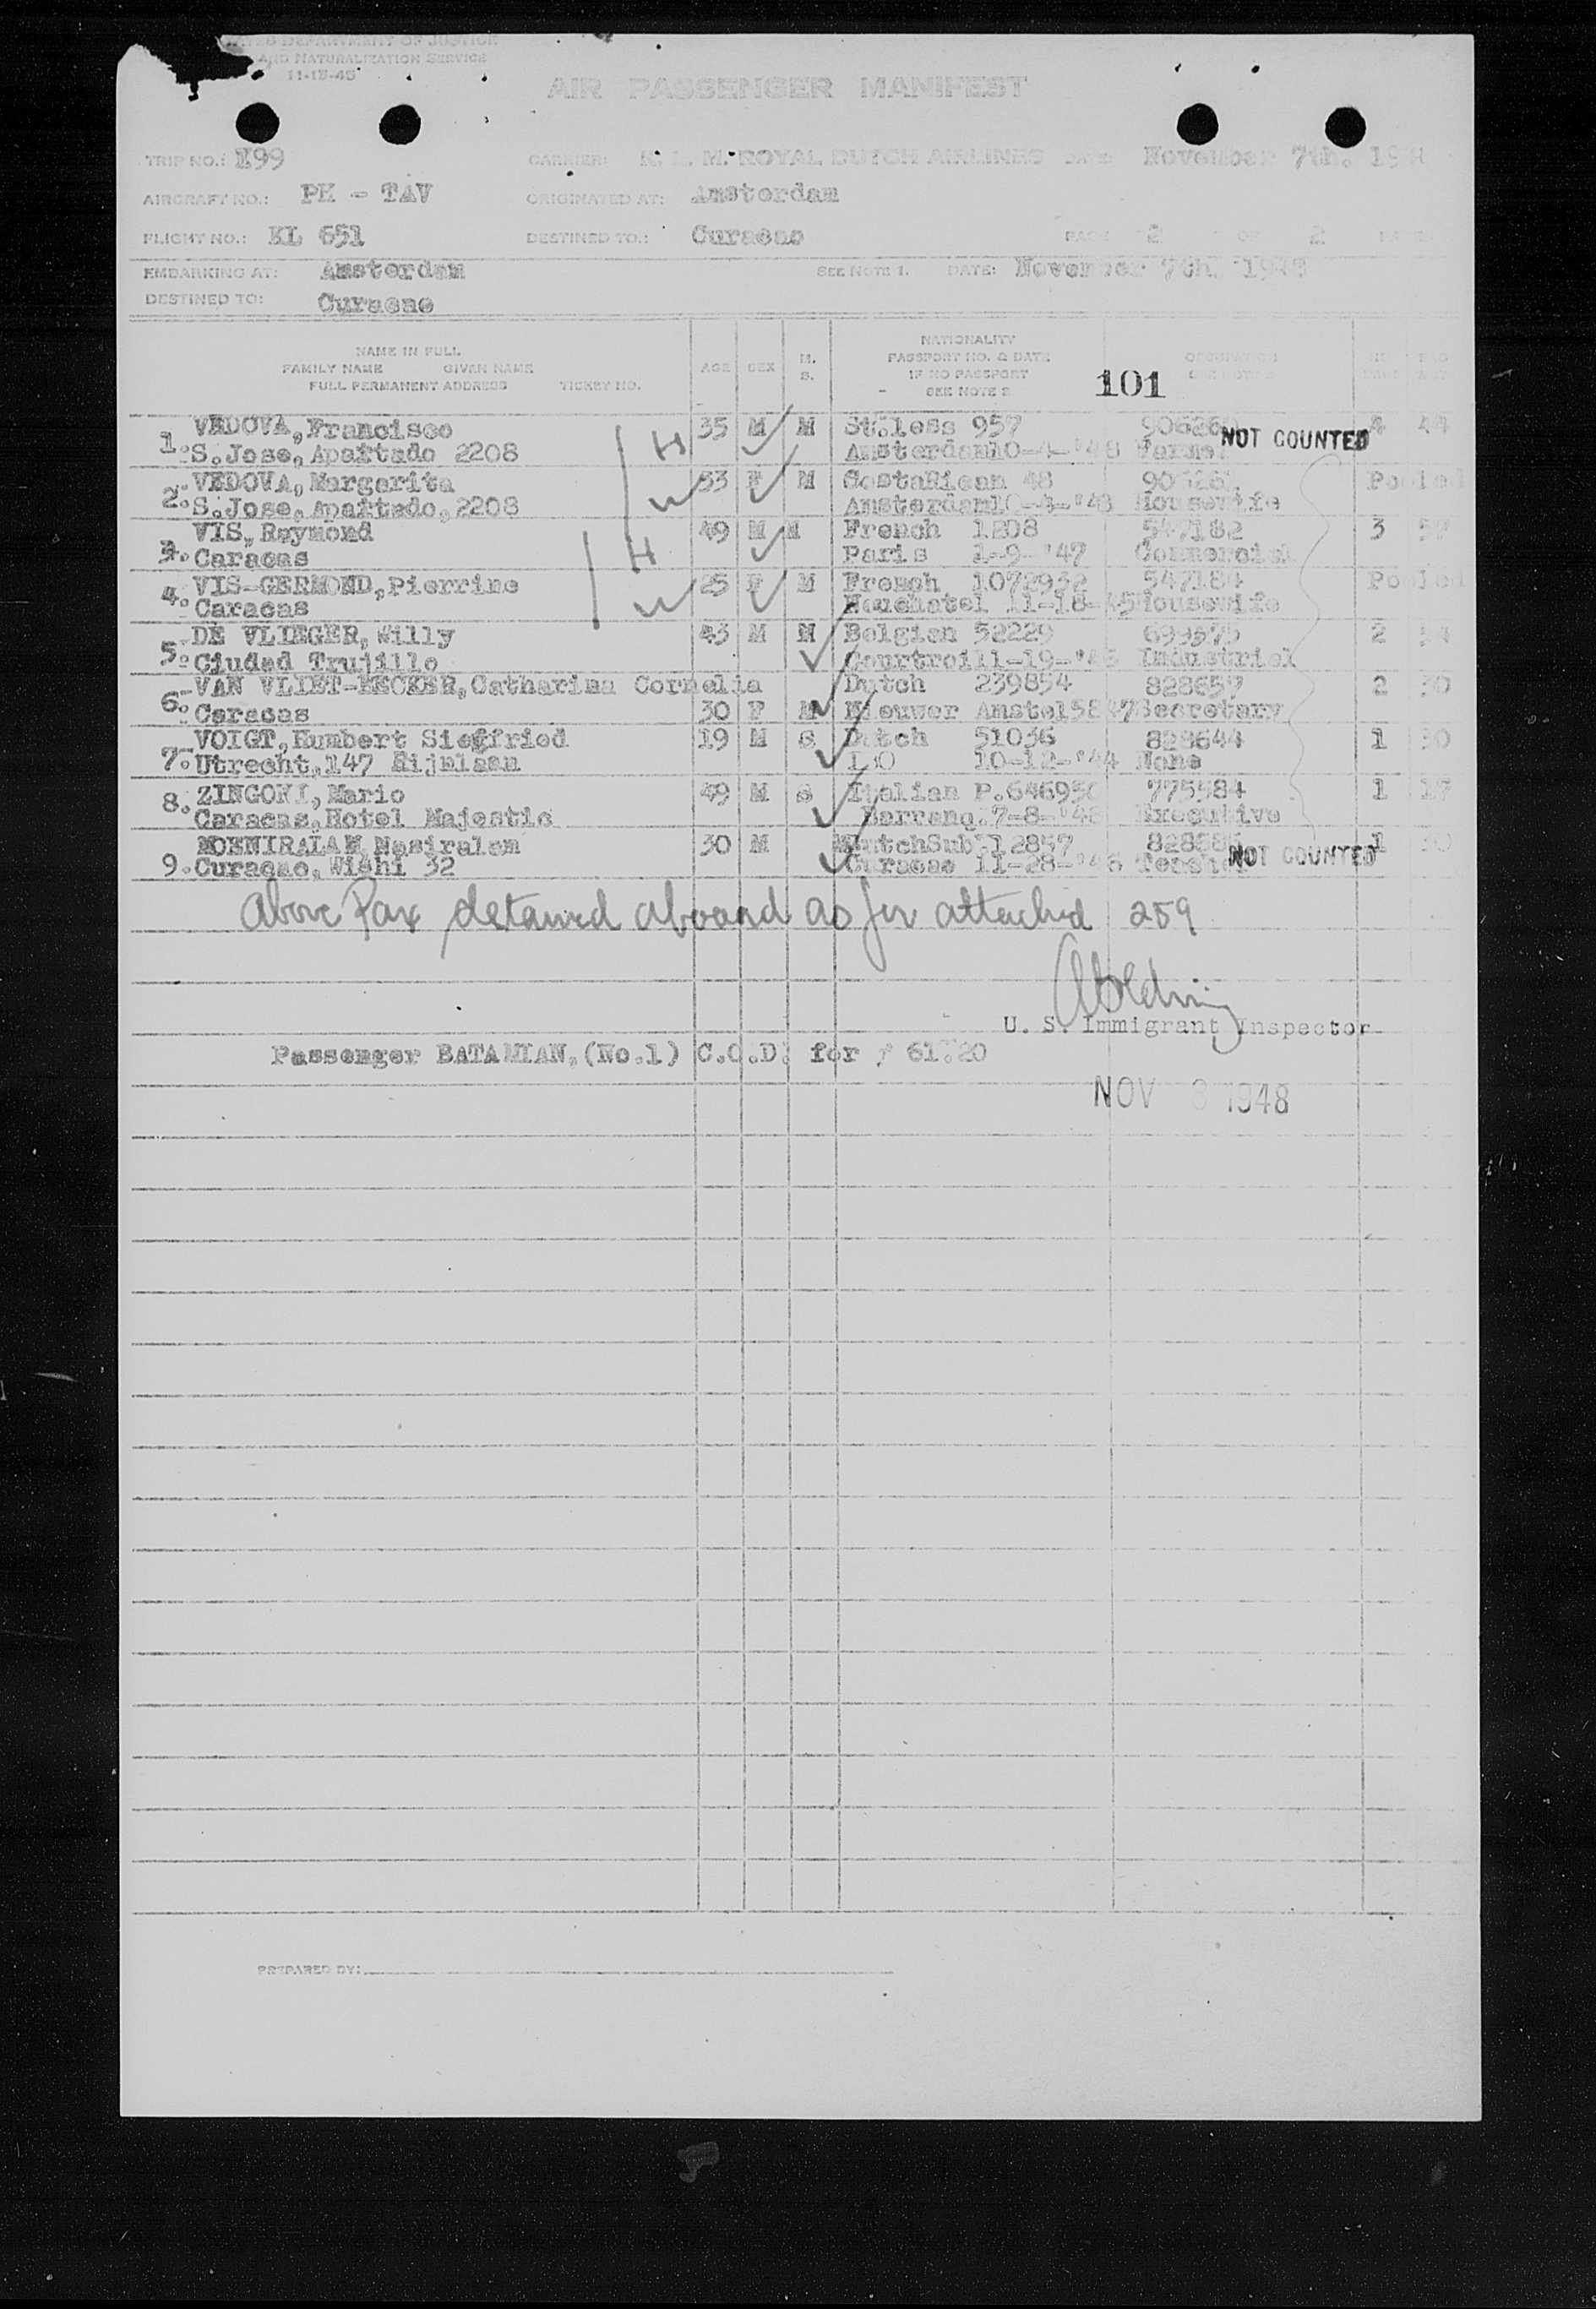 UNITED DEPARTMENT OF JUSTICE
AND NATURALIZATION SERVICE
11-15-45
AIR PASSENGER MANIFEST
TRIP NO.: I99 CARRIER: K. L. M. ROYAL DUTCH AIRLINES DATE: November 7th. 194
AIRCRAFT NO.: PH - TAV ORIGINATED AT: Amsterdam
FLIGHT NO.: KL 651 DESTINED TO.: Curacao PAGE 2 OF 2 PAGES
EMBARKING AT: Amsterdam SEE NOTE 1. DATE: November 7th. 1948
DESTINED TO: Curacao
NAME IN FULL
FAMILY NAME GIVEN NAME
FULL PERMANENT ADDRESS TICKET NO.
AGE SEX M. S.
NATIONALITY
PASSPORT NO. & DATE
IF NO PASSPORT
SEE NOTE 2
OCCUPATION
101
1. VEDOVA, Francisco 35 M M St.less 957 NOT COUNTED 4 44
S. Jose, Apartado 2208 H Amsterdam10-4-'48 Farmer
2. VEDOVA, Margarita 53 F M CostaRican 48 Pooled
S. Jose, Apartado, 2208 W Amsterdam10-4-'48 Housewife
3. VIS, Raymond 49 M M French 1208 547182 3
Caracas H Paris 1-9-'47 Commercial
4. VIS-GERMOND, Pierrine 25 F M French 1072932 547184 Pooled
Caracas W Neuchatel 11-18-'45 Housewife
5. DE VLIEGER, Willy 43 M M Belgian 52229 2
Ciudad Trujillo Courtrai11-19-'45 Industrial
6. VAN VLIET-BECKER, Catharina Cornelia Dutch 239854 828657 2 30
Caracas 30 F M Nieuwer Amstel5847 Secretary
7. VOIGT, Humbert Siegfried 19 M S Dutch 51036 828644 1 30
Utrecht, 147 Rijnlaan 10-12-'44 None
8. ZINGONI, Mario 49 M S Italian P.646950 775584 1
Caracas, Hotel Majestic Barranq.7-8-'48 Executive
9. MOENIRALAM Nasiralam 30 M M DutchSub 12857 NOT COUNTED 1 30
Curacao, Wishi 32 Curacao 11-28-'46
Above Pax detained aboard as per attached 259
U. S. Immigrant Inspector
Passenger BATAMIAN, (No.1) C.O.D. for f 61.20
NOV 8 1948
PREPARED BY: